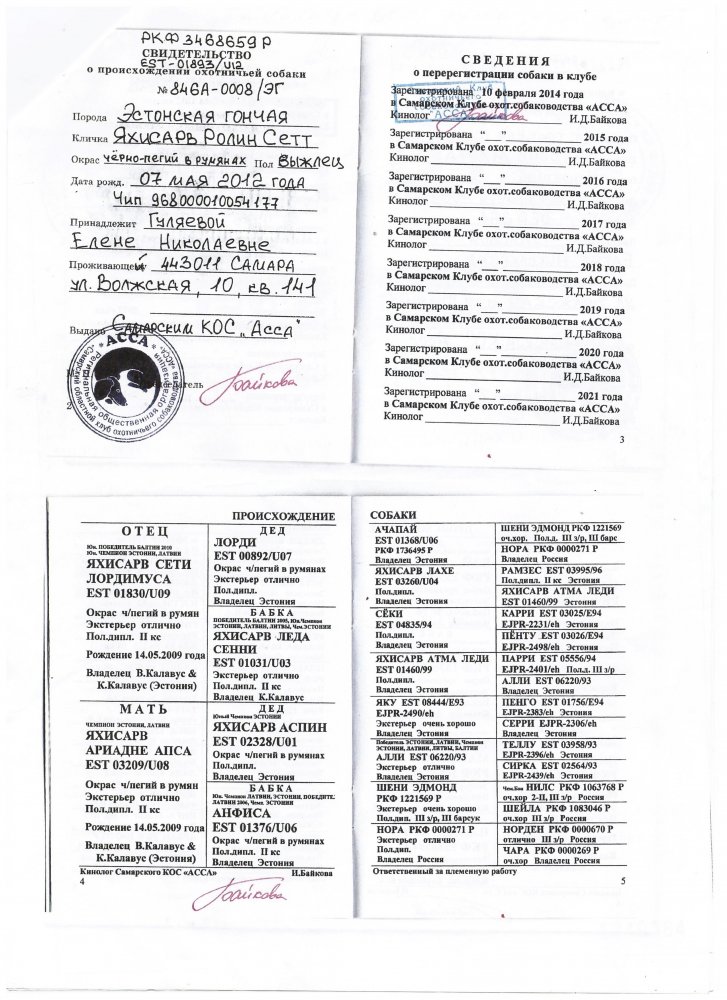 РКФ 3468659 Р
СВИДЕТЕЛЬСТВО
EST-01893/U12
о происхождении охотничьей собаки
№ 846А-0008/ЭГ
Порода ЭСТОНСКАЯ ГОНЧАЯ
Кличка ЯХИСАРВ РОЛИН СЕТТ
Окрас ЧЕРНО-ПЕГИЙ В РУМЯНАХ Пол ВЫЖЛЕЦ
Дата рожд. 07 МАЯ 2012 ГОДА
ЧИП 968000010054177
Принадлежит ГУЛЯЕВОЙ
ЕЛЕНЕ НИКОЛАЕВНЕ
Проживающей 443011 САМАРА
УЛ. ВОЛЖСКАЯ, 10, КВ. 141
Выдано САМАРСКИМ КОС "АССА"
* АССА *
Региональная общественная организация
Самарский областной клуб охотничьего собаководства «АССА»
Байкова
2
СВЕДЕНИЯ
о перерегистрации собаки в клубе
Зарегистрирована 10 февраля 2014 года
в Самарском Клубе охот.собаководства «АССА»
Кинолог Байкова И.Д.Байкова
Зарегистрирована “__” ________ 2015 года
в Самарском Клубе охот.собаководства «АССА»
Кинолог ________ И.Д.Байкова
Зарегистрирована “__” ________ 2016 года
в Самарском Клубе охот.собаководства «АССА»
Кинолог ________ И.Д.Байкова
Зарегистрирована “__” ________ 2017 года
в Самарском Клубе охот.собаководства «АССА»
Кинолог ________ И.Д.Байкова
Зарегистрирована “__” ________ 2018 года
в Самарском Клубе охот.собаководства «АССА»
Кинолог ________ И.Д.Байкова
Зарегистрирована “__” ________ 2019 года
в Самарском Клубе охот.собаководства «АССА»
Кинолог ________ И.Д.Байкова
Зарегистрирована “__” ________ 2020 года
в Самарском Клубе охот.собаководства «АССА»
Кинолог ________ И.Д.Байкова
Зарегистрирована “__” ________ 2021 года
в Самарском Клубе охот.собаководства «АССА»
Кинолог ________ И.Д.Байкова
3
ПРОИСХОЖДЕНИЕ
ОТЕЦ
Юн. ПОБЕДИТЕЛЬ БАЛТИИ 2010
Юн. ЧЕМПИОН ЭСТОНИИ, ЛАТВИИ
ЯХИСАРВ СЕТИ
ЛОРДИМУСА
EST 01830/U09
Окрас ч/пегий в румян
Экстерьер отлично
Пол.дипл. II кс
Рождение 14.05.2009 года
Владелец В.Калавус &
К.Калавус (Эстония)
МАТЬ
ЧЕМПИОН ЭСТОНИИ, ЛАТВИИ
ЯХИСАРВ
АРИАДНЕ АПСА
EST 03209/U08
Окрас ч/пегий в румян
Экстерьер отлично
Пол.дипл. II кс
Рождение 14.05.2009 года
Владелец В.Калавус &
К.Калавус (Эстония)
ДЕД
ЛОРДИ
EST 00892/U07
Окрас ч/пегий в румянах
Экстерьер отлично
Пол.дипл.
Владелец Эстония
БАБКА
ПОБЕДИТЕЛЬ БАЛТИИ 2005, Юн.Чемпион
ЭСТОНИИ, ЛАТВИИ, ЛИТВЫ, Чем.ЭСТОНИИ
ЯХИСАРВ ЛЕДА
СЕННИ
EST 01031/U03
Экстерьер отлично
Пол.дипл. II кс
Владелец К.Калавус
ДЕД
Юный Чемпион ЭСТОНИИ
ЯХИСАРВ АСПИН
EST 02328/U01
Окрас ч/пегий в румянах
Пол.дипл.
Владелец Эстония
БАБКА
Юн. Чемпион ЛАТВИИ, ЭСТОНИИ, ПОБЕДИТЕ.
ЛАТВИИ 2006, Чемп. ЭСТОНИИ
АНФИСА
EST 01376/U06
Окрас ч/пегий в румянах
Пол.дипл. II кс
Владелец Эстония
Кинолог Самарского КОС «АССА» И.Байкова
4
Байкова
СОБАКИ
АЧАПАЙ
EST 01368/U06
РКФ 1736495 Р
Владелец Эстония
ЯХИСАРВ ЛАХЕ
EST 03260/U04
Пол.дипл.
Владелец Эстония
СЁКИ
EST 04835/94
Пол.дипл.
Владелец Эстония
ЯХИСАРВ АТМА ЛЕДИ
EST 01460/99
Пол.дипл.
Владелец Эстония
ЯКУ EST 08444/E93
EJPR-2490/eh
Экстерьер очень хорошо
Владелец Эстония
Победитель ЭСТОНИИ, ЛАТВИИ, Чемпион
ЭСТОНИИ, ЛАТВИИ, ЛИТВЫ, БАЛТИИ
АЛЛИ EST 06220/93
Экстерьер отлично
Владелец Эстония
ШЕНИ ЭДМОНД
РКФ 1221569 Р
Экстерьер очень хорошо
Пол.дип. III з/р, III барсук
НОРА РКФ 0000271 Р
Экстерьер отлично
Пол.дип.
Владелец Россия
ШЕНИ ЭДМОНД РКФ 1221569
оч.хор. Пол.д. III з/р, III барс
НОРА РКФ 0000271 Р
Владелец Россия
РАМЗЕС EST 03995/96
Пол.дипл. II кс Эстония
ЯХИСАРВ АТМА ЛЕДИ
EST 01460/99 Эстония
КАРРИ EST 03025/E94
EJPR-2231/eh Эстония
ПЁНТУ EST 03026/E94
EJPR-2498/eh Эстония
ПАРРИ EST 05556/94
EJPR-2401/eh Пол.д. III з/р
АЛЛИ EST 06220/93
Владелец Эстония
ПЕНГО EST 01756/E94
EJPR-2383/eh Эстония
СЕРРИ EJPR-2306/eh
Владелец Эстония
ТЕЛЛУ EST 03958/93
EJPR-2396/eh Эстония
СИРКА EST 02564/93
EJPR-2439/eh Эстония
НИЛС РКФ 1063768 Р
оч.хор 2-II, III з/р Россия
ШЕЙЛА РКФ 1083046 Р
оч.хор III з/р Россия
НОРДЕН РКФ 0000670 Р
отлично III з/р Россия
ЧАРА РКФ 0000269 Р
оч.хор Владелец Россия
Ответственный за племенную работу
5